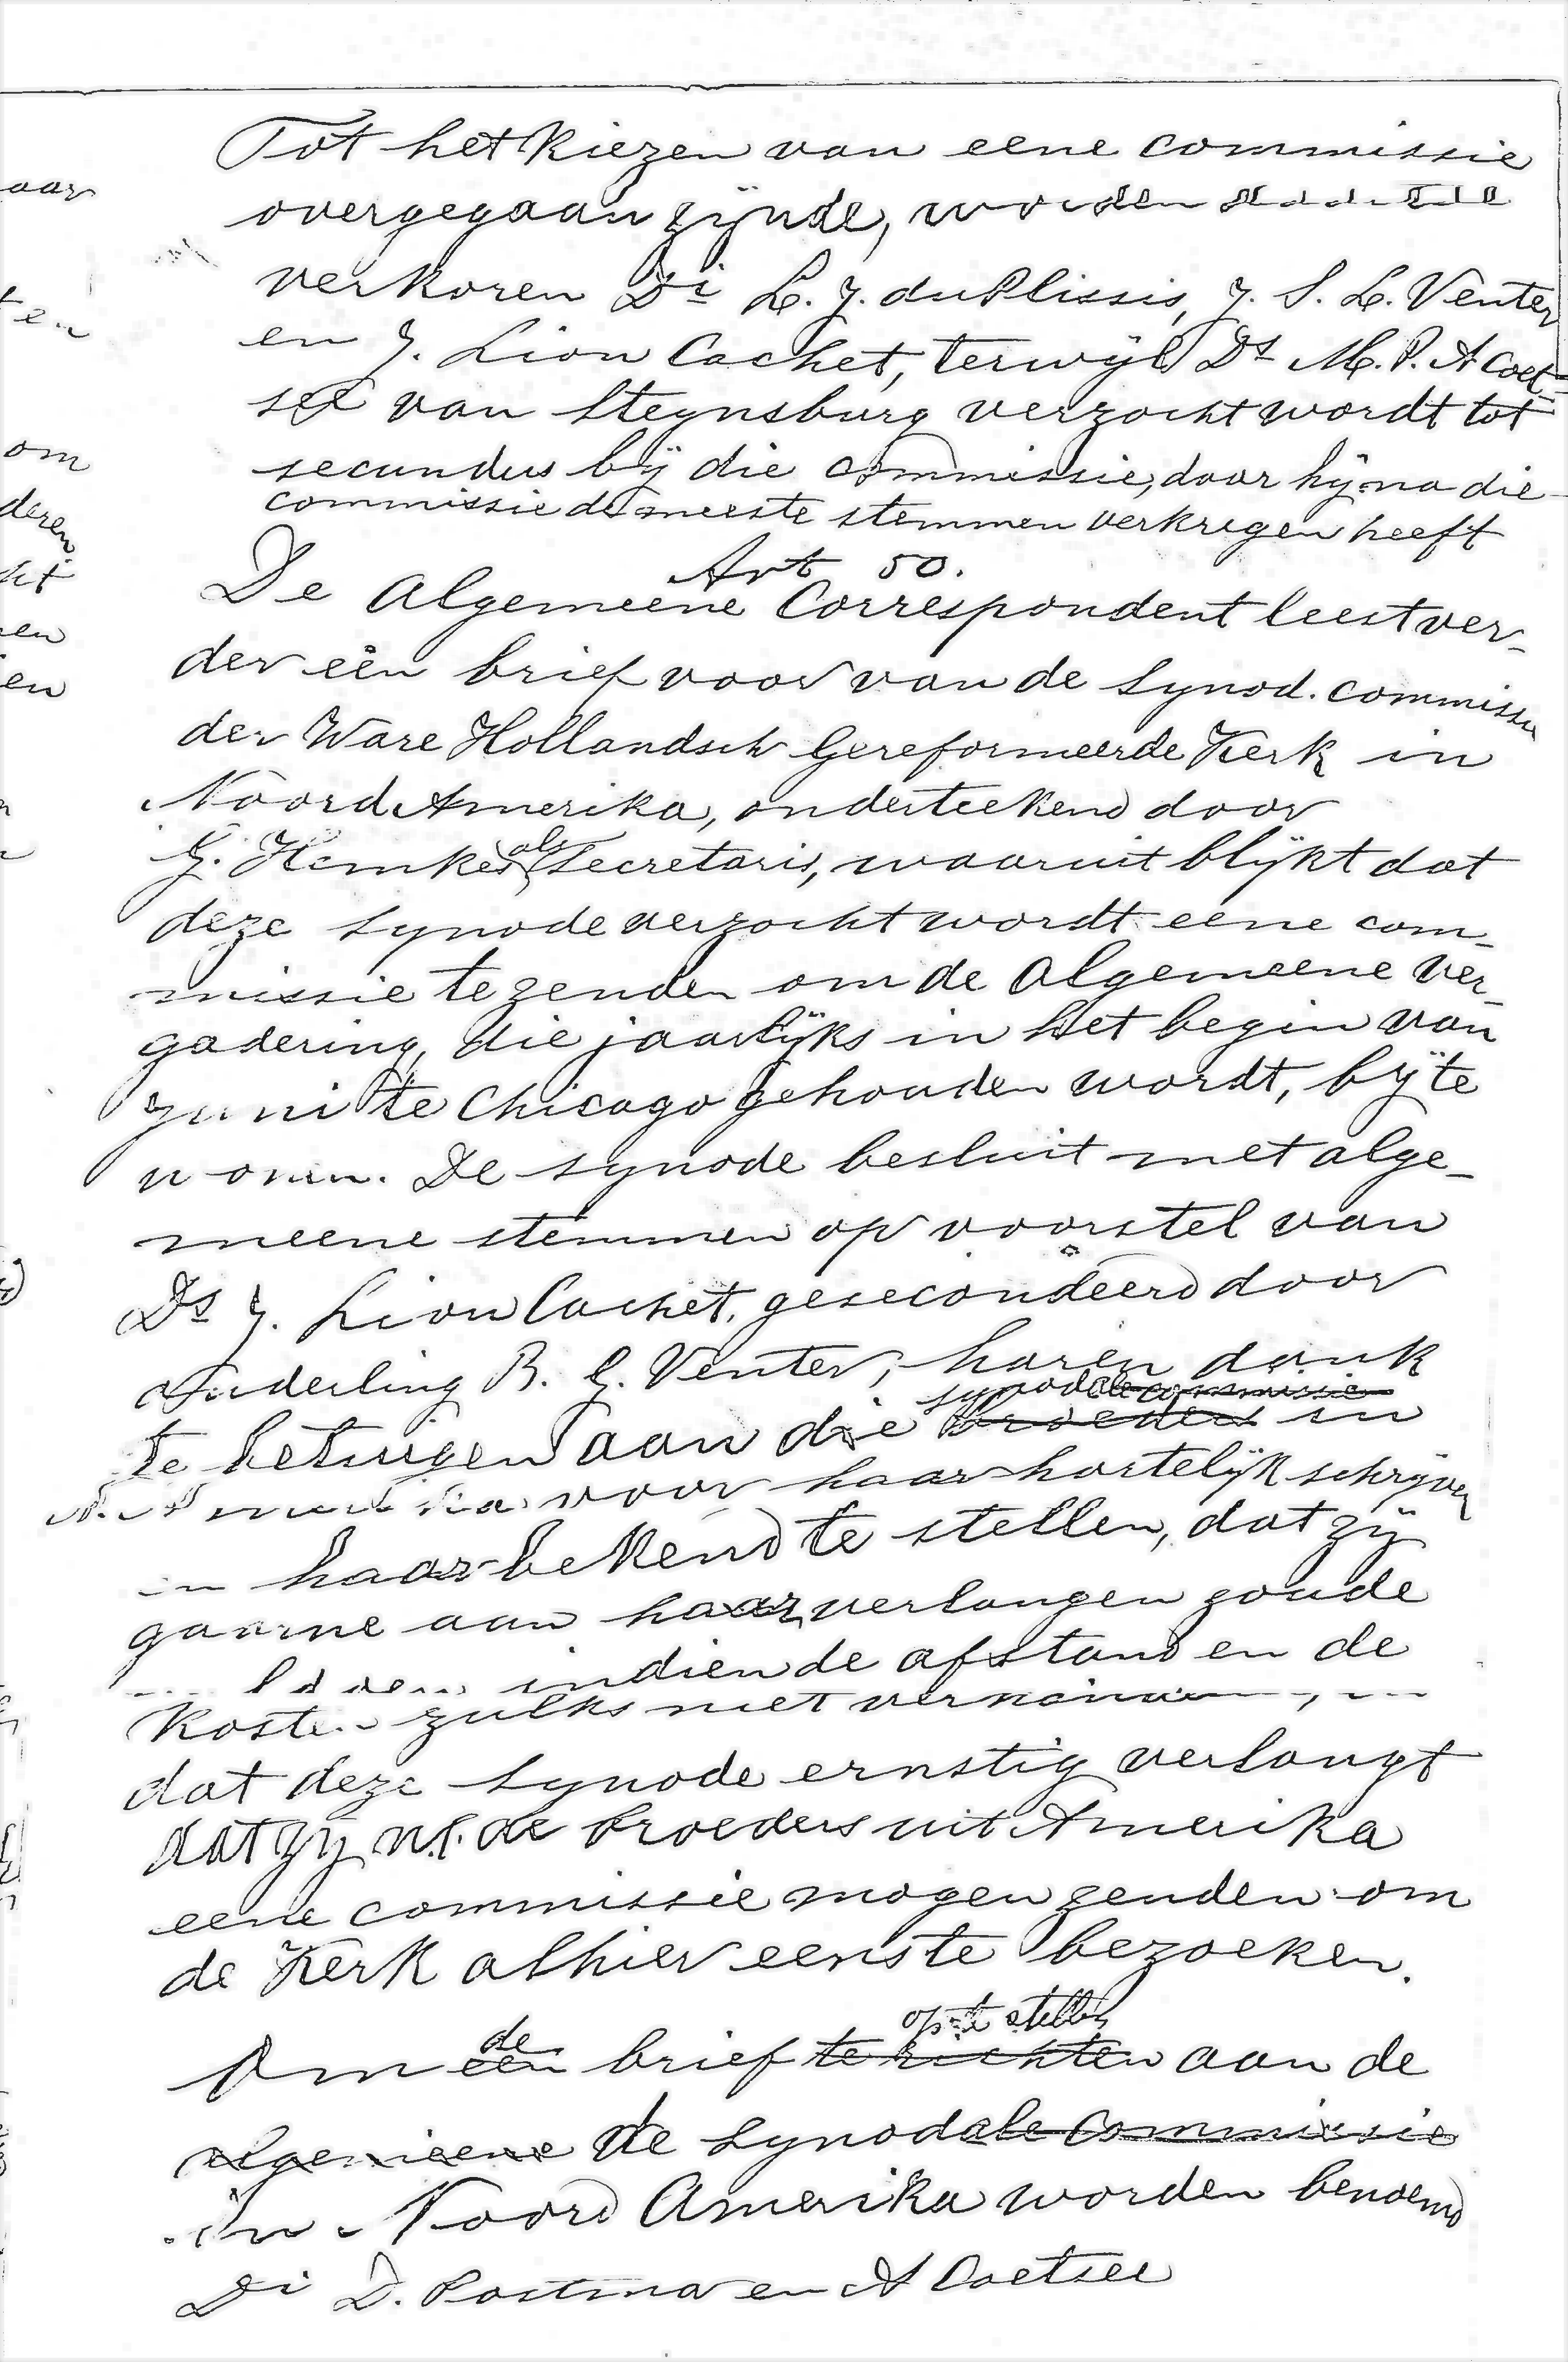 Tot het kiezen van eene commissie
overgegaan zijnde, worden
verkoren Di L. J. duPlissis, J. S. L. Venter
en J. Lion Cachet, terwijl Ds M. P. A Coet=
see van Steynsburg verzocht wordt tot
secundus bij die commissie, daar hij na die
commissie de meeste stemmen verkregen heeft
Art 50.
De Algemeene Correspondent leest ver-
der een brief voor van de Synod. commissie
der Ware Hollandsch Gereformeerde Kerk in
Noord Amerika, onderteekend door
G. Hemkes als Secretaris, waaruit blijkt dat
deze synode verzocht wordt eene com-
missie te zenden om de Algemeene Ver-
gadering, die jaarlijks in het begin van
Juni te Chicago gehouden wordt, bij te
wonen. De synode besluit met alge-
meene stemmen op voorstel van
Ds J. Lion Cachet, gesecondeerd door
Ouderling B. G. Venter, haren dank
synodale commissie
te betuigen aan die broeders in
N. Amerika voor haar hartelijk schrijven
en haar bekend te stellen, dat zij
gaarne aan haar verlangen zoude
indien de afstand en de
Kosten zulks niet
dat deze synode ernstig verlangt
dat zij n.l. de broeders uit Amerika
eene commissie mogen zenden om
de Kerk alhier eens te bezoeken.
de op te stellen
Om een brief te richten aan de
algemeene de Synodale Commissie
in Noord Amerika worden benoemd
Di D. Postma en A Coetsee
aar
ten
om
deren
ht
en
en